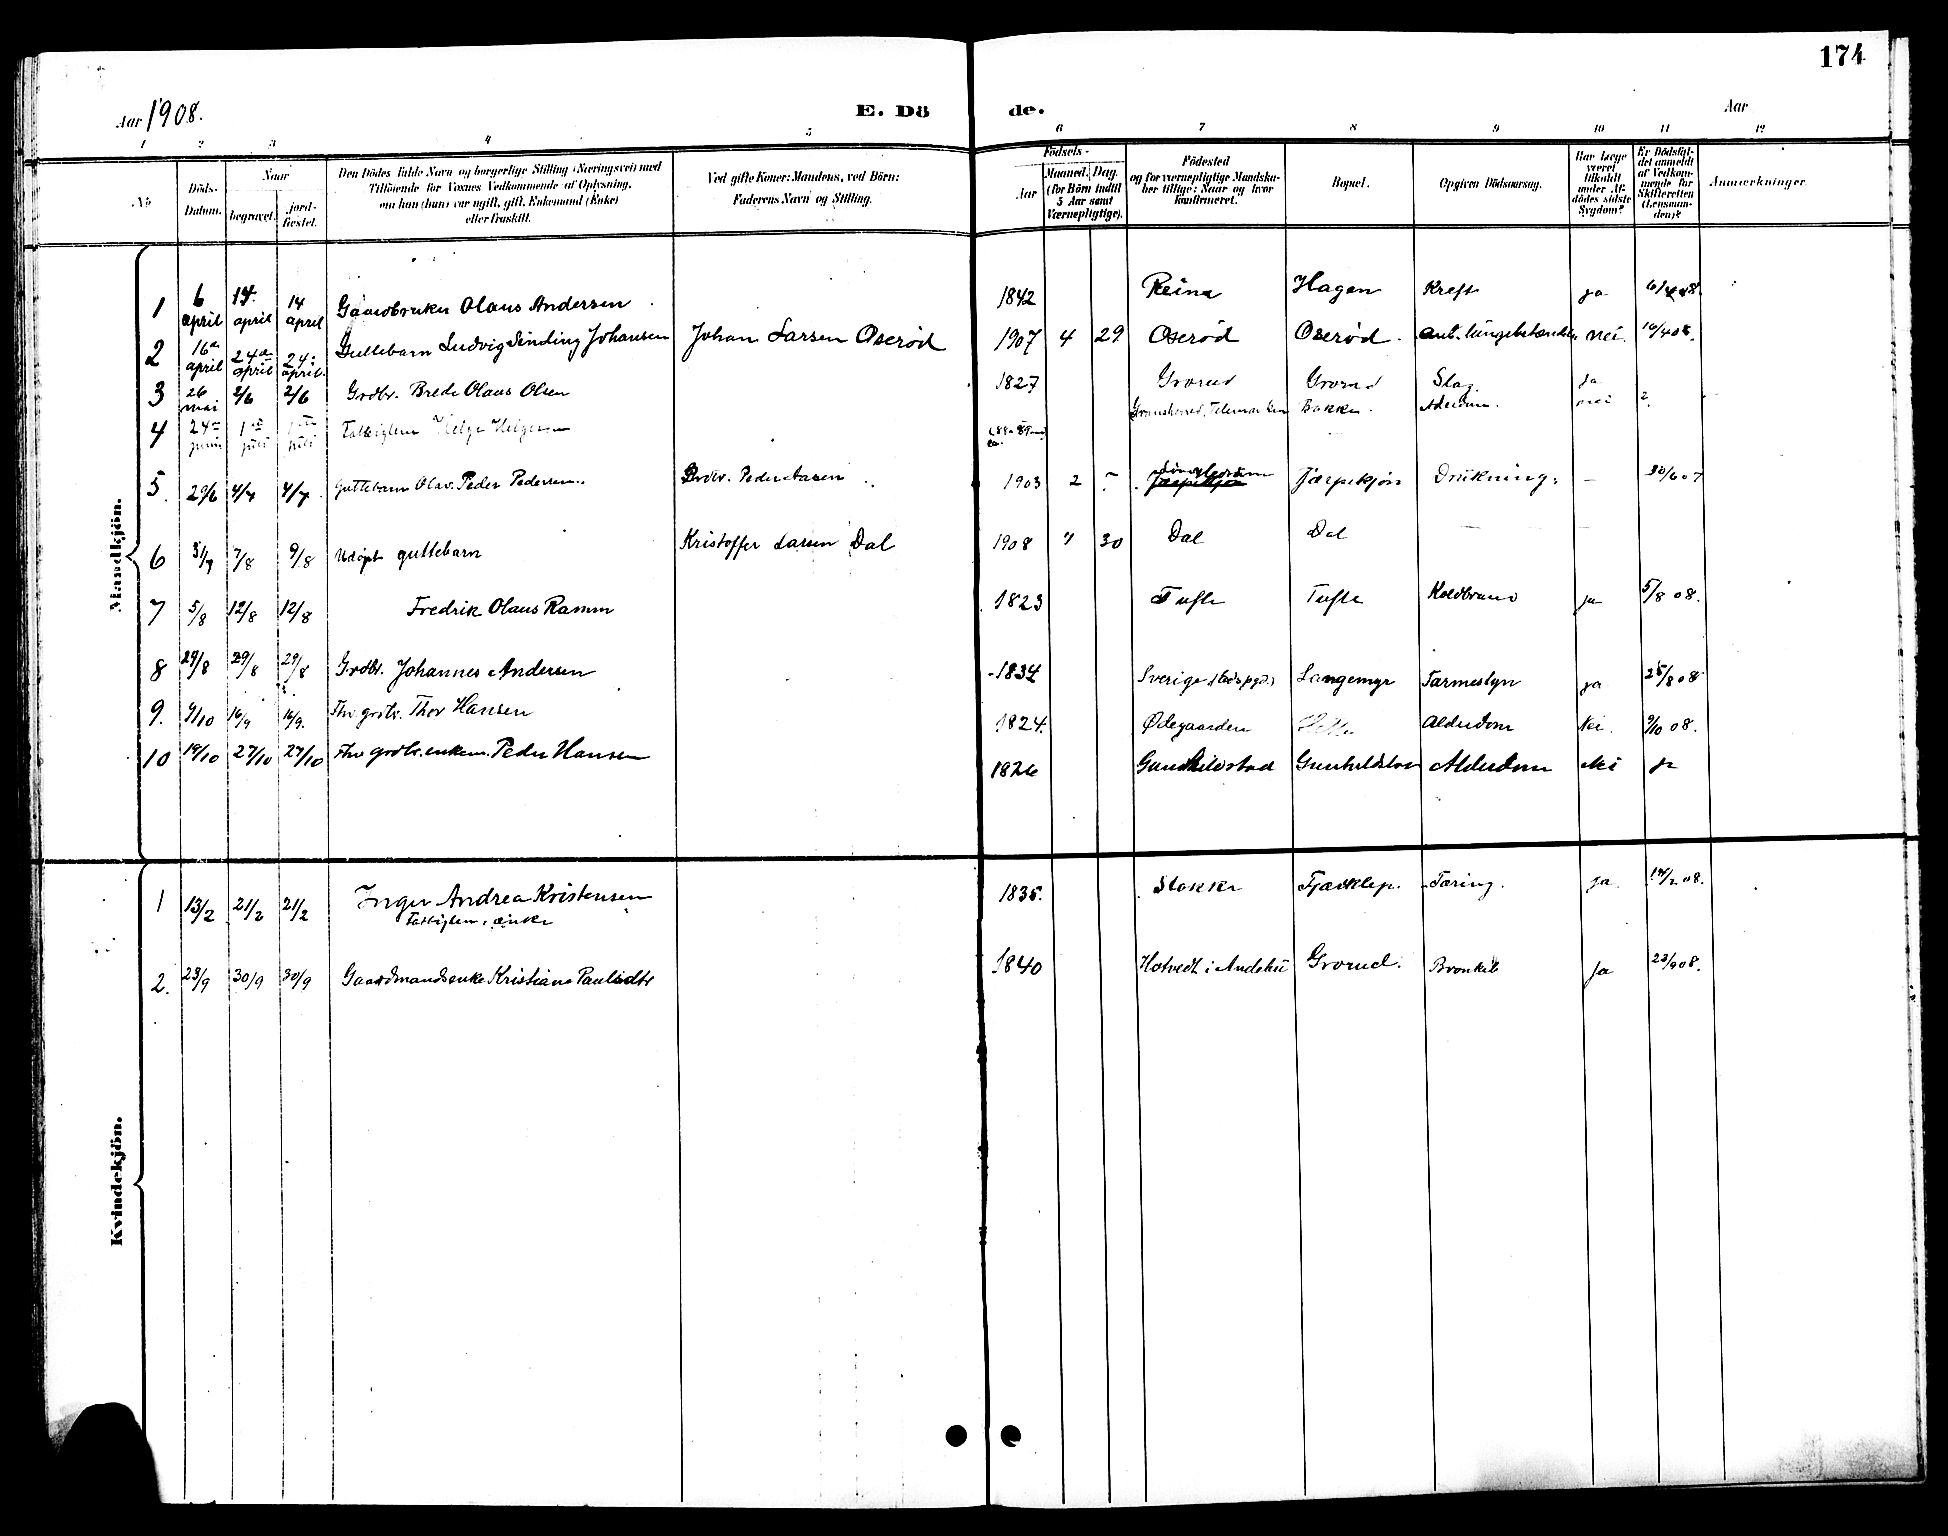 174
Aar 1908.
E. Dö de.
Aar
1 2 3 4 5 6 7 8 9 10 11 12
No
Döds-Datum.
Naar
begravet.
jord-fæstet.
Den Dödes fulde Navn og borgerlige Stilling (Næringsvei) med
Tilföiende for Voxnes Vedkommende af Oplysning,
om han (hun) var ugift, gift, Enkemand (Enke)
eller fraskilt.
Ved gifte Koner: Mandens, ved Börn:
Faderens Navn og Stilling.
Födsels-
Aar
Maaned. Dag.
(for Börn indtil
5 Aar samt
Værnepligtige).
Födested
og for værnepligtige Mandska-
ber tillige: Naar og hvor
konfirmeret.
Bopæl.
Opgiven Dödsaarsag.
Har Læge
været
tilkaldt
under Af-
dödes sidste
Sygdom?
Er Dödsfal-
det anmeldt
af Vedkom-
mende for
Skifteretten
(Lensman-
den)?
Anmærkninger.
Mandkjön.
1 6 april 14 april 14 april Gaardbruker Olaus Andersen 1842 Reine Hagen Kreft ja 6/4 08
2 16de april 24de april 24de april. Guttebarn Ludvig Sinding Johansen Johan Larsen Oserød 1907 4 29 Oserød Oserød. lungebetændelse nei. 16/4 08.
3 26 mai 2/6 2/6 Grdbr. Brede Olaus Olsen 1827 Grorud Grorud Slag. ja
4 24de juni 1ste juli 1ste juli Fattiglem Helge Helgesen Telemarken Bakken. Alderdom. nei
5. 29/6 4/7 4/7 Guttebarn Olav Peder Pedersen. Grdbr. Peder Aasen 1903 2 Jarpekjøn Drukning. — 30/6 07
6 31/7 7/8 9/8 Udøpt guttebarn Kristoffer Larsen Dal 1908 7 30 Dal Dal — —
7 5/8 12/8 12/8 Fredrik Olaus Ramm 1823 Tufte Tufte Koldbrand ja 5/8 08.
8 29/8 29/8 29/8 Grdbr. Johannes Andersen 1834 Sverige Langemyr Tarmeslyn ja 25/8 08
9. 9/10 16/9 16/9. Fhv grdbr. Thor Hansen 1824. Ødegaarden Alderdom Nei. 9/10 08.
10 19/10 27/10 27/10 Fhv grdbr. enkem. Peder Hansen 1826 Gunhildstad Gunhildstad Alderdom Nei ja
Kvindekjön.
1 13/2 21/2 21/2 Inger Andrea Kristensen 1835. Stokke Fjærklep. Tæring. ja. 14/2 08.
Fattiglem, enke
2. 23/9 30/9 30/9 Gaardmandsenke Kristiane Paulsdtr 1840 Hotvedt i Andebu Grorud. Bronkit ja 23/9 08.